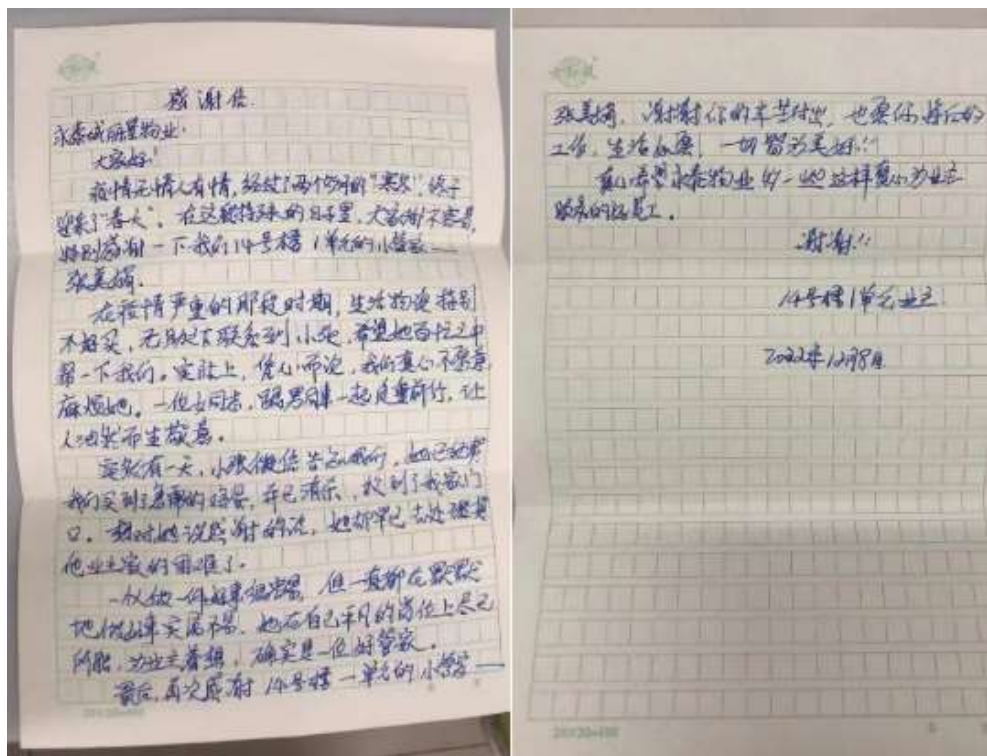 感谢信
永泰城丽景物业:
大家好!
疫情无情人有情,经过了两个多月的“寒冬”终于
迎来了“春天”。在这段特殊的日子里,大家都不容易,
特别感谢一下我们14号楼1单元的小管家——
张美娟。
在疫情严重的那段时期,生活物资特别
不好买,无奈之下联系到小张,希望她百忙之中
帮一下我们。实际上,凭心而论,我们真心不愿意
麻烦她。一位女同志,跟男同事一起负重前行,让
人油然而生敬意。
突然有一天,小张微信告知我们,她已经帮
我们买到了急需的,并已消杀,放到了我家门
口。想对她说感谢的话,她却早已去处理其
他业主家的困难了。
一个人做一件好事很容易,但一直都在默默
地做好事实属不易,她在自己平凡的岗位上尽己
所能,为业主着想,确实是一位好管家。
最后,再次感谢14号楼一单元的小管家——
张美娟,谢谢你的辛苦付出,也愿你将后的
工作、生活如愿,一切皆为美好!!
真心希望永泰物业多一些这样真心为业主
服务的好员工。
谢谢!!
14号楼1单元业主
2022年12月8日
20X20=400